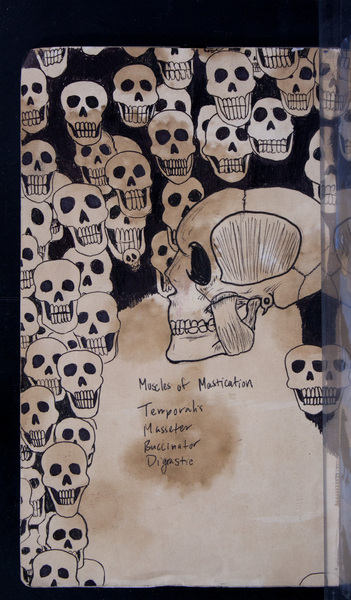 Muscles of Mastication
Temporalis
Masseter
Buccinator
Digastic